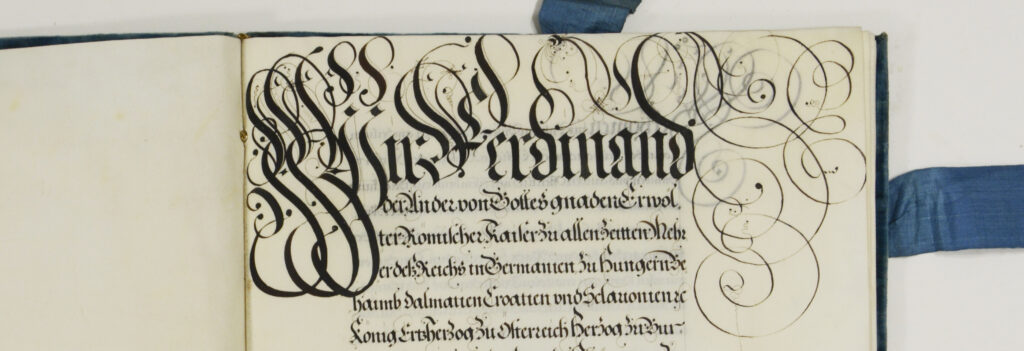 Wir Ferdinand
der Ander von Gottes gnaden Erwöl,
ter Römischer Kaiser zu allen Zeitten Mehr
er deß Reichs in Germanien zu Hungern Be
haimb Dalmatien Croatien vnd Sclauonien ꝛc
König Ertzherzog zu Osterreich Herzog zu Bur-